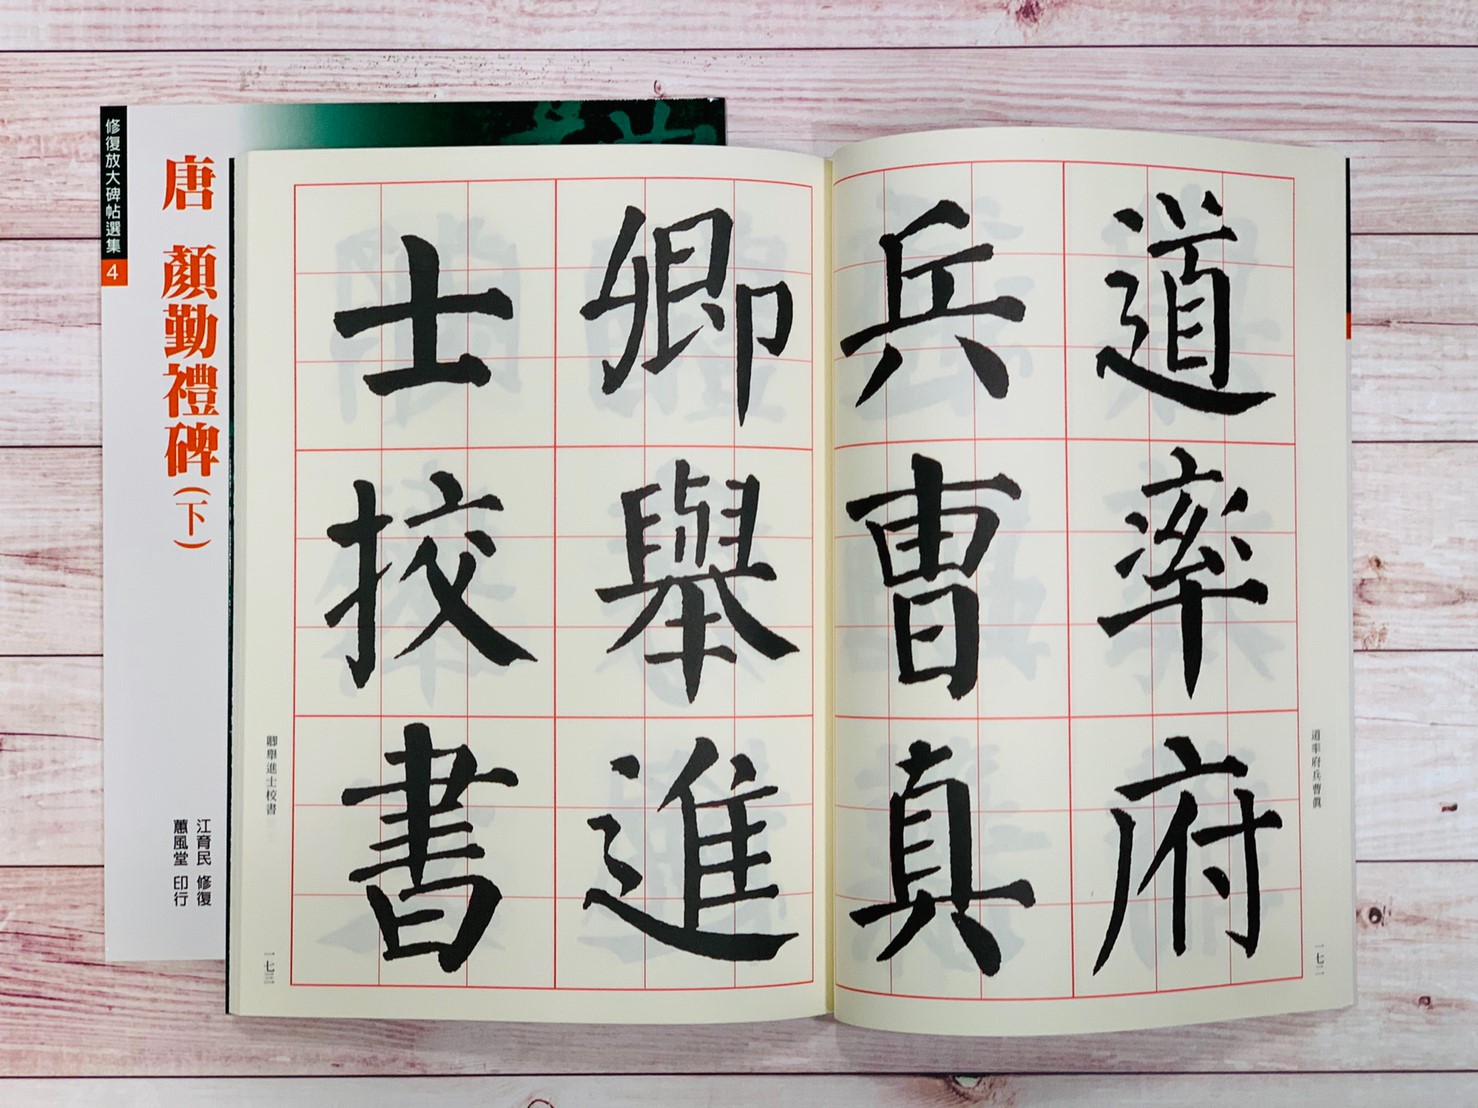 修復放大碑帖選集
4
唐 顏勤禮碑
(下)
江育民 修復
蕙風堂 印行
道率府
兵曹真
道率府兵曹眞
一七二
卿舉進
士挍書
卿舉進士校書
一七三